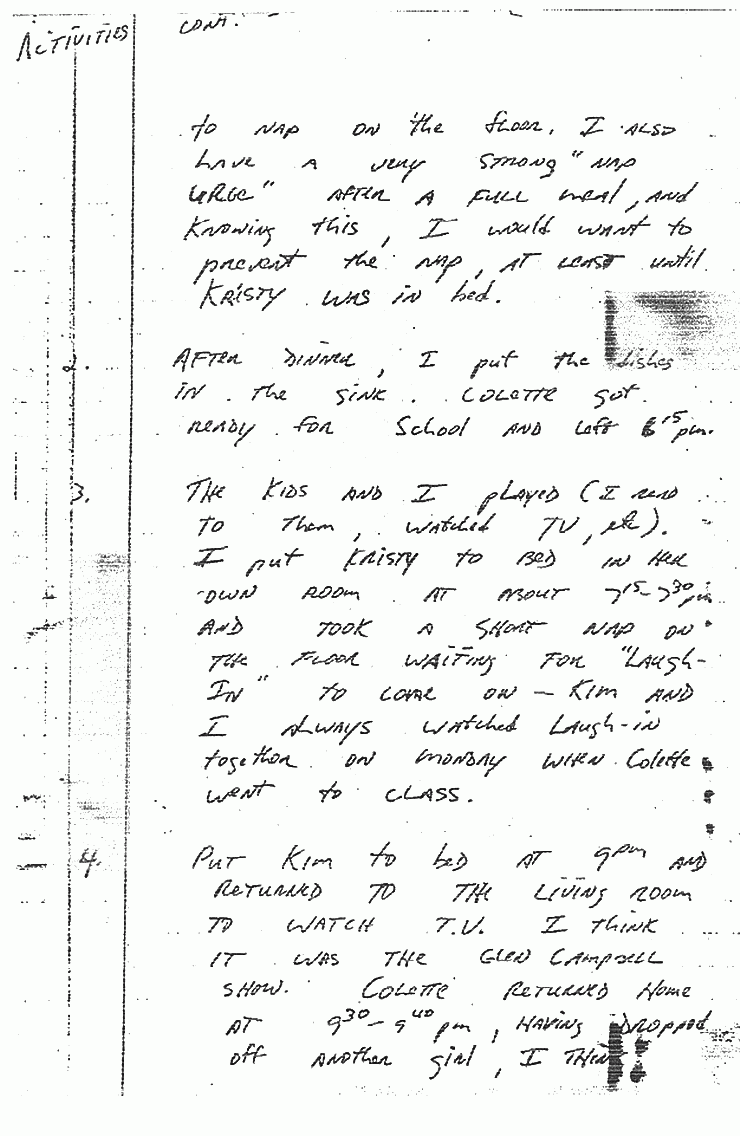 ACTIVITIES CONT.
to NAP ON the floor. I ALSO
have A very STRONG "NAP
URGE" AFTER A FULL meal, AND
KNOWING this, I would want to
prevent the NAP, AT LEAST until
KRISTY WAS in bed.
2. AFTER DINNER, I put the dishes
IN the SINK. COLETTE got
READY for School AND left 6 15 pm.
3. THE KIDS AND I played (I read
TO them, watched TV, etc).
I put KRISTY TO BED IN HER
OWN ROOM AT ABOUT 7 15 - 7 30 pm
AND TOOK A SHORT NAP ON
THE FLOOR WAITING FOR "LAUGH-
IN" TO COME ON — KIM AND
I ALWAYS WATCHED LAUGH-IN
together ON MONDAY WHEN Colette
went to CLASS.
4. PUT KIM to bED AT 9 pm AND
RETURNED TO THE LIVING ROOM
TO WATCH T.V. I THINK
IT WAS THE GLEN CAMPBELL
SHOW. COLETTE RETURNED HOME
AT 9 30 - 9 40 pm, HAVING DROPPED
off ANOTHER girl, I THINK